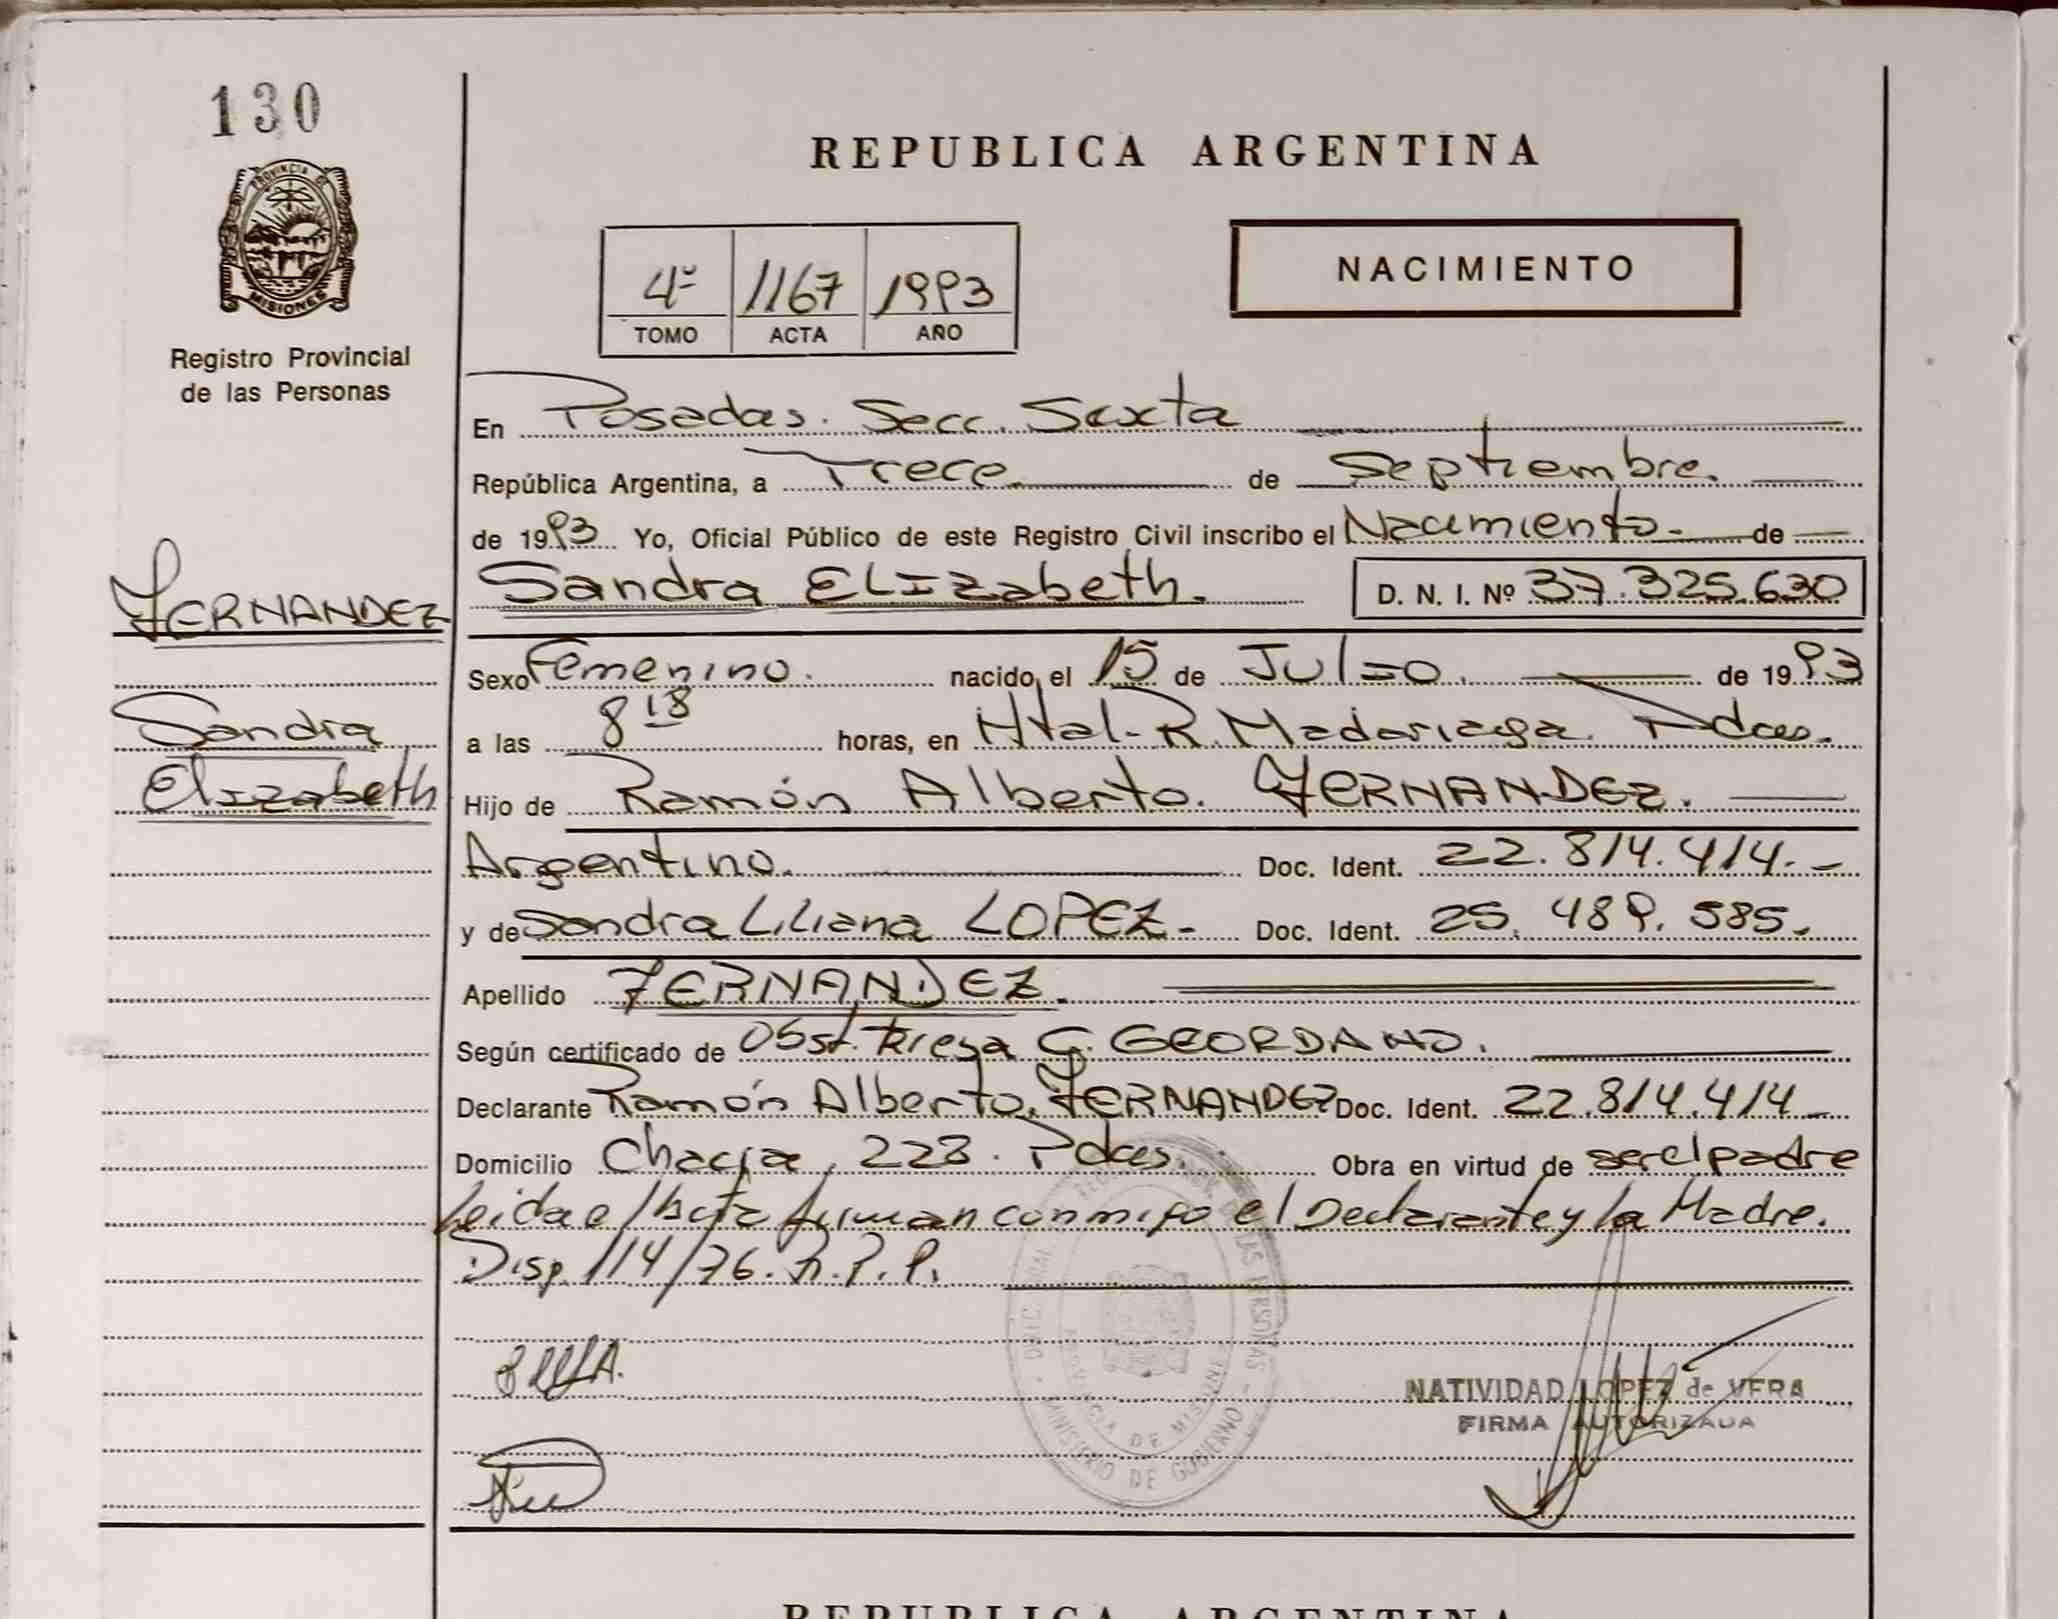 130
REPUBLICA ARGENTINA
PROVINCIA DE
MISIONES
Registro Provincial
de las Personas
4º 1167 1993
TOMO ACTA AÑO
NACIMIENTO
En Posadas. Secc. Sexta
República Argentina, a Trece de Septiembre.
de 1993 Yo, Oficial Público de este Registro Civil inscribo el Nacimiento de
FERNANDEZ
Sandra Elizabeth
Sandra ELIzabeth. D. N. I. Nº 37.325.630
Sexo Femenino. nacido el 15 de Julio. de 1993
a las 8 18 horas, en Htal. R. Madariaga. Pdas.
Hijo de Ramón Alberto. FERNANDEZ.
Argentino. Doc. Ident. 22.814.414.-
y de Sandra Liliana LOPEZ- Doc. Ident. 25.489.585.
Apellido FERNANDEZ.
Según certificado de Obst. Teresa G. GEORDANO.
Declarante Ramón Alberto. FERNANDEZ Doc. Ident. 22.814.414
Domicilio 223. Pdas. Obra en virtud de ser el padre
Leida el Acta firman conmigo el Declarante y la Madre.
Disp. 114/76. R.P.P.
NATIVIDAD LOPEZ de VERA
FIRMA AUTORIZADA
PROVINCIA DE MISIONES
MINISTERIO DE GOBIERNO
REPUBLICA ARGENTINA